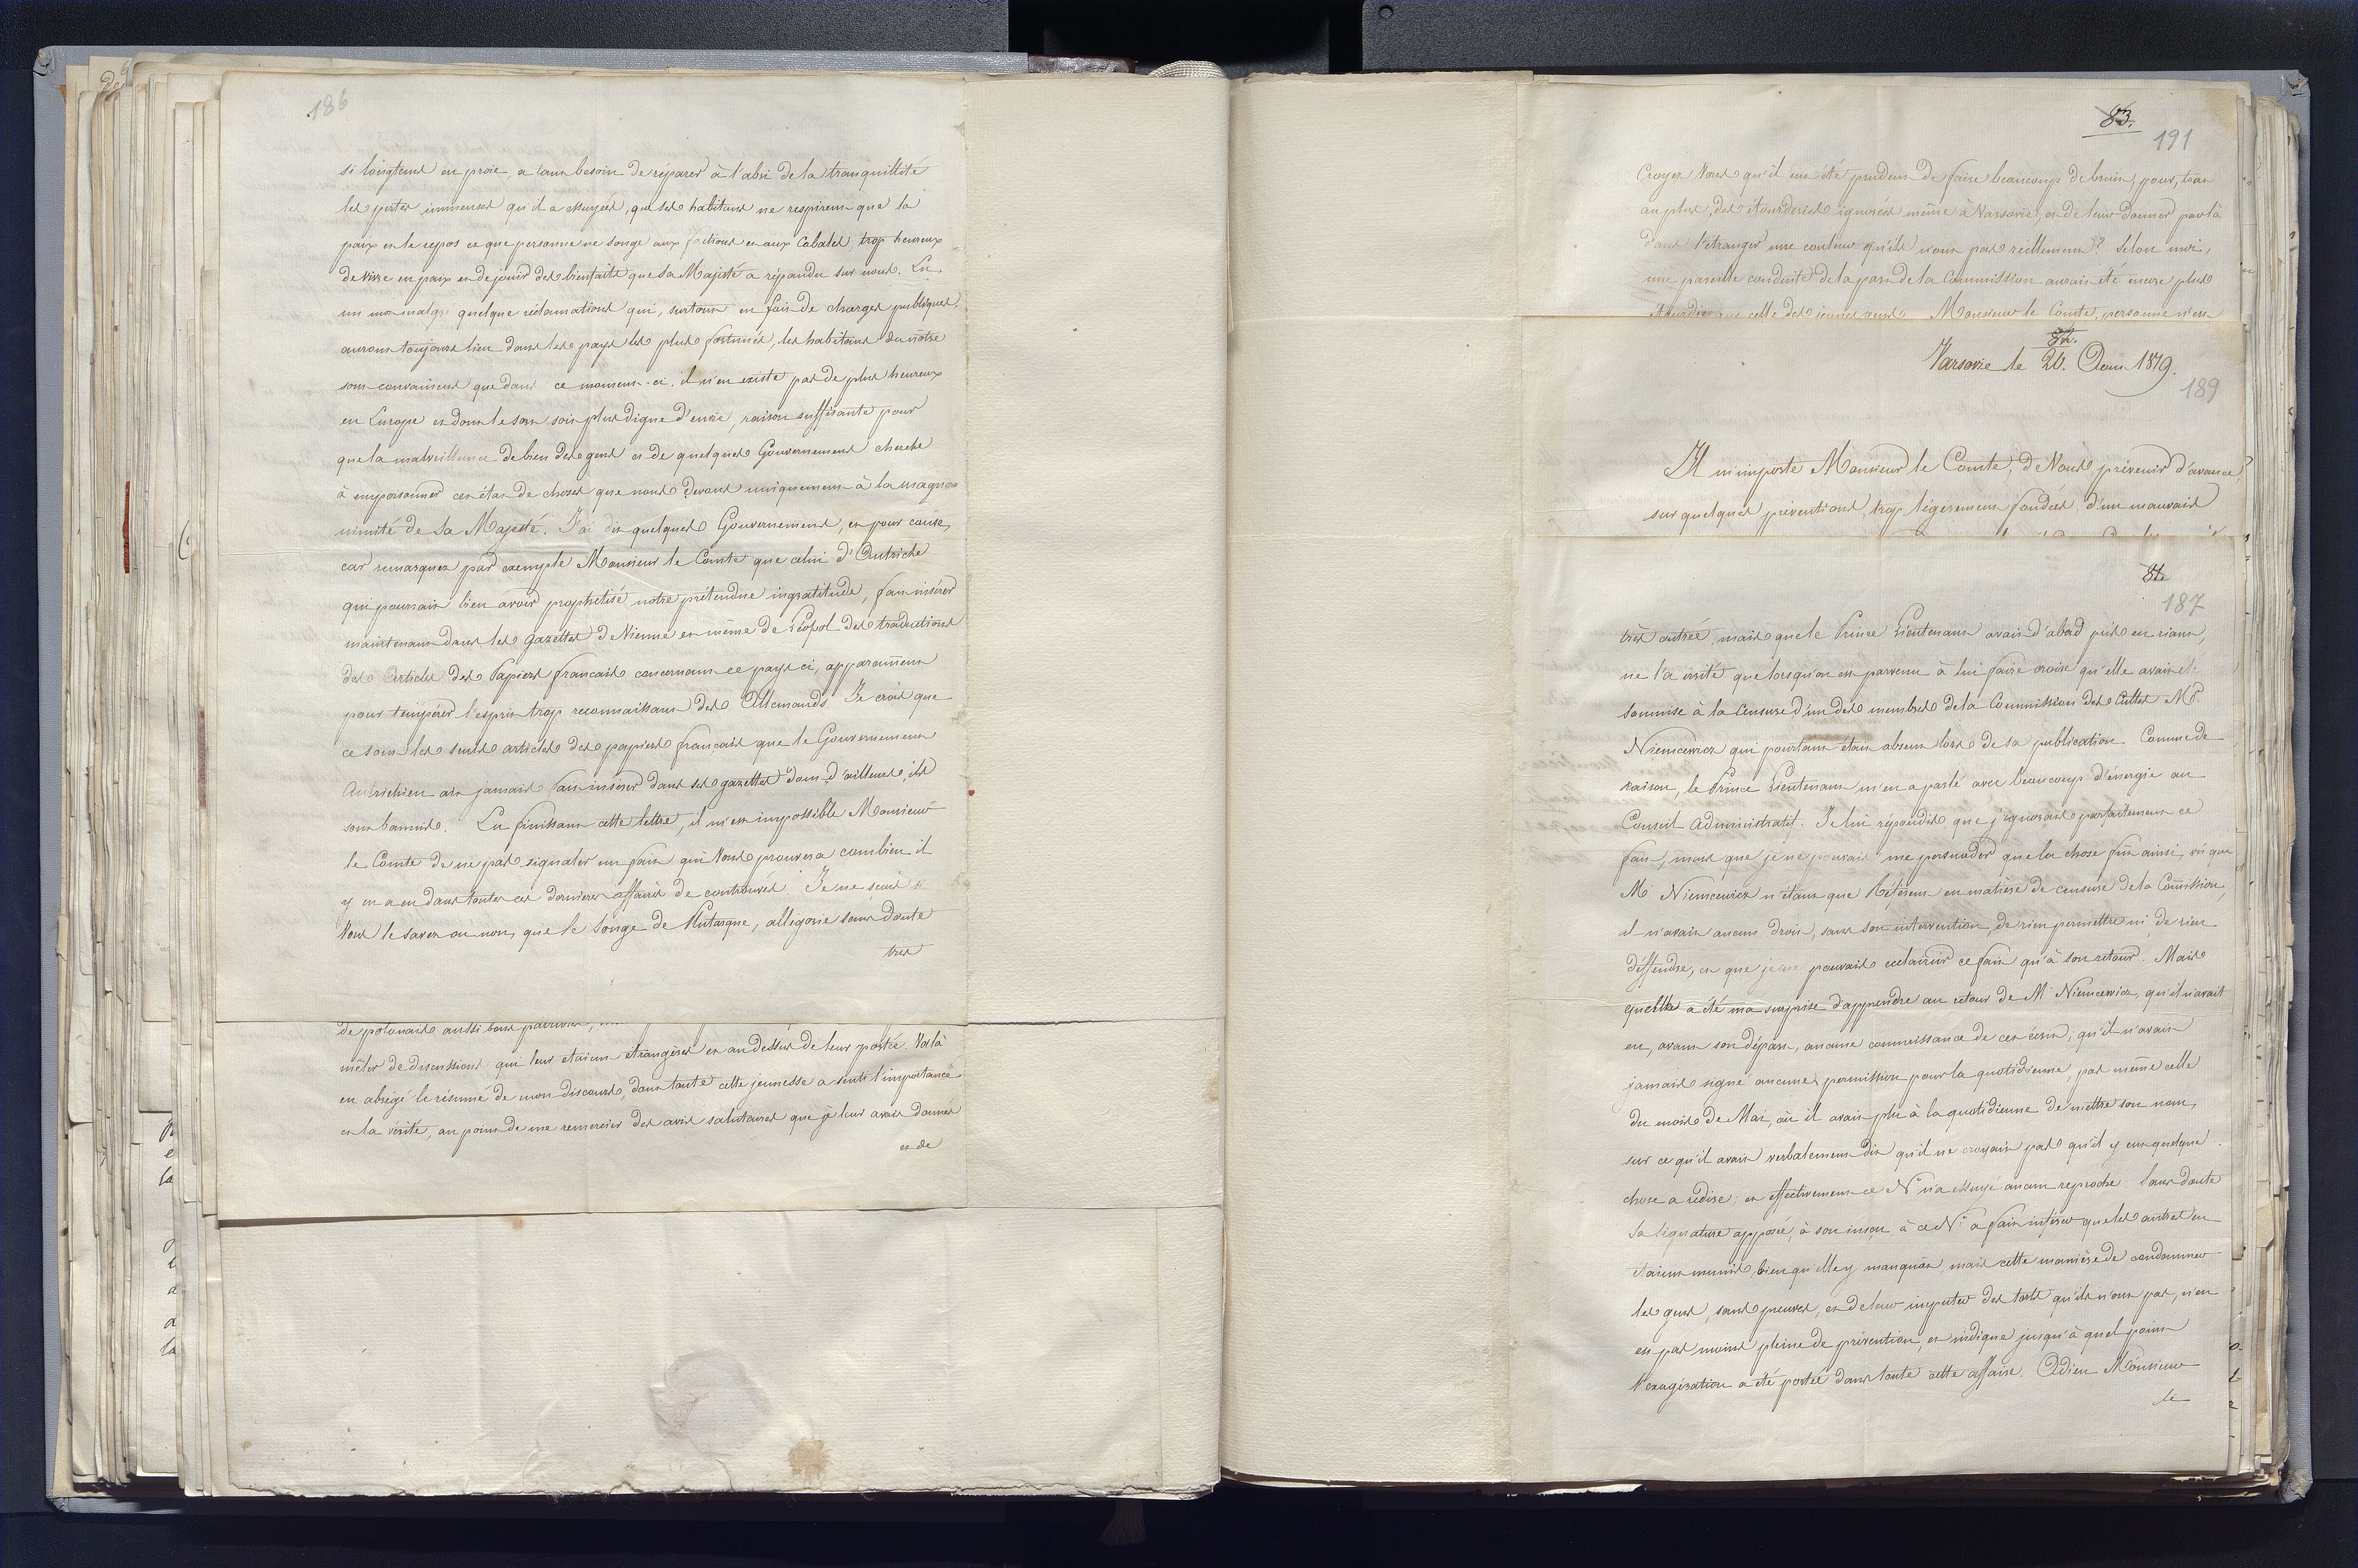 186
si longtems en proie, a tant besoin de réparer à l'abri de la tranquillité
les pertes immenses qu'il a essuyées, que ses habitans ne respirent que la
paix et le repos et que personne ne songe aux factions et aux Cabales, trop heureux
de vivre en paix et de jouir des bienfaits que sa Majesté a répandu sur nous. En
un mot malgré quelque réclamations qui, surtout en fait de charges publiques,
auront toujours lieu dans les pays les plus fortunés, les habitans du nôtre
sont convaincus que dans ce moment-ci, il n'en existe pas de plus heureux
en Europe et dont le sort soit plus digne d'envie, raison suffisante pour
que la malveillance de bien des gens et de quelques Gouvernemens cherche
à empoisonner cet état de choses que nous devons uniquement à la magna
nimité de Sa Majesté. J'ai dit quelques Gouvernemens, et pour cause,
car remarquez par exemple Monsieur le Comte que celui d'Autriche
qui pourrait bien avoir prophétisé notre prétendue ingratitude, fait insérer
maintenant dans les gazettes de Vienne et même de Léopol des traductions
des Articles des Papiers francais concernant ce pays ci, apparemment
pour tempérer l'esprit trop reconnaissant des Allemands. Je crois que
ce sont les seuls articles des papiers francais que le Gouvernement
Autrichien ait jamais fait insérer dans ses gazettes dont d'ailleurs, ils
sont bannis. En finissant cette lettre, il m'est impossible Monsieur
le Comte de ne pas signaler un fait qui Vous prouvera combien il
y en a eu dans toutes ces dernieres affaires de controuvés. Je ne sais si
Vous le savez ou non, que le Songe de Plutarque, allégorie sans doute
tres
de polonais aussi bons patriotes,
mêler de discussions qui leur etaient etrangères et au dessus de leur portée. Voilà
en abrégé le résumé de mon discours, dont toute cette jeunesse a senti l'importance
et la vérité, au point de me remercier des avis salutaires que je leur avais donnés
et de
83.
191
Croyez Vous qu'il eut été prudent de faire beaucoup de bruit, pour, tout
au plus, des étourderies ignorées même à Varsovie, et de leur donner par là
dans l'étranger une couleur qu'ils n'ont pas réellement? Selon moi,
une pareille conduite de la part de la Commission aurait été encore plus
étourdie que celle des jeunes gens. Monsieur le Comte, personne n'est
82.
Varsovie le 20. Aout 1819.
189
Il m'importe Monsieur le Comte, de Vous prévenir d'avance
sur quelques préventions, trop légèrement fondées, d'un mauvais
81.
187
très outrée, mais que le Prince Lieutenant avait d'abord prise en riant,
ne l'a irrité que lorsqu'on est parvenu à lui faire croire qu'elle avait été
soumise à la Censure d'un des membres de la Commission des Cultes Mr.
Niemcewicz qui pourtant était absent lors de sa publication. Comme de
raison, le Prince Lieutenant m'en a parlé avec beaucoup d'énergie au
Conseil Administratif. Je lui répondis que j'ignorais parfaitement ce
fait, mais que je ne pouvais me persuader que la chose fut ainsi, vû que
Mr Niemcewicz n'étant que Référent en matière de censure de la Comission,
il n'avait aucun droit, sans son intervention, de rien permettre ni de rien
déffendre, et que je ne pouvais eclaircir ce fait qu'à son retour. Mais
quelle a été ma surprise d'apprendre au retour de Mr Niemcewicz, qu'il n'avait
eu, avant son départ, aucune connaissance de cet écrit; qu'il n'avait
jamais signé aucune permission pour la quotidienne, pas même celle
du mois de Mai, où il avait plu à la quotidienne de mettre son nom,
sur ce qu'il avait verbalement dit qu'il ne croyait pas qu'il y eut quelque
chose a redire; et effectivement ce No n'a essuyé aucun reproche. Sans doute
sa signature apposée, à son insçu, à ce No a fait inférer que les autres en
etaient munis, bien qu'elle y manquât, mais cette manière de condamner
les gens, sans preuves, et de leur imputer des torts qu'ils n'ont pas, n'en
est pas moins pleine de prévention, et indique jusqu'à quel point
l'exagération a été portée dans toute cette affaire. Adieu Monsieur
le